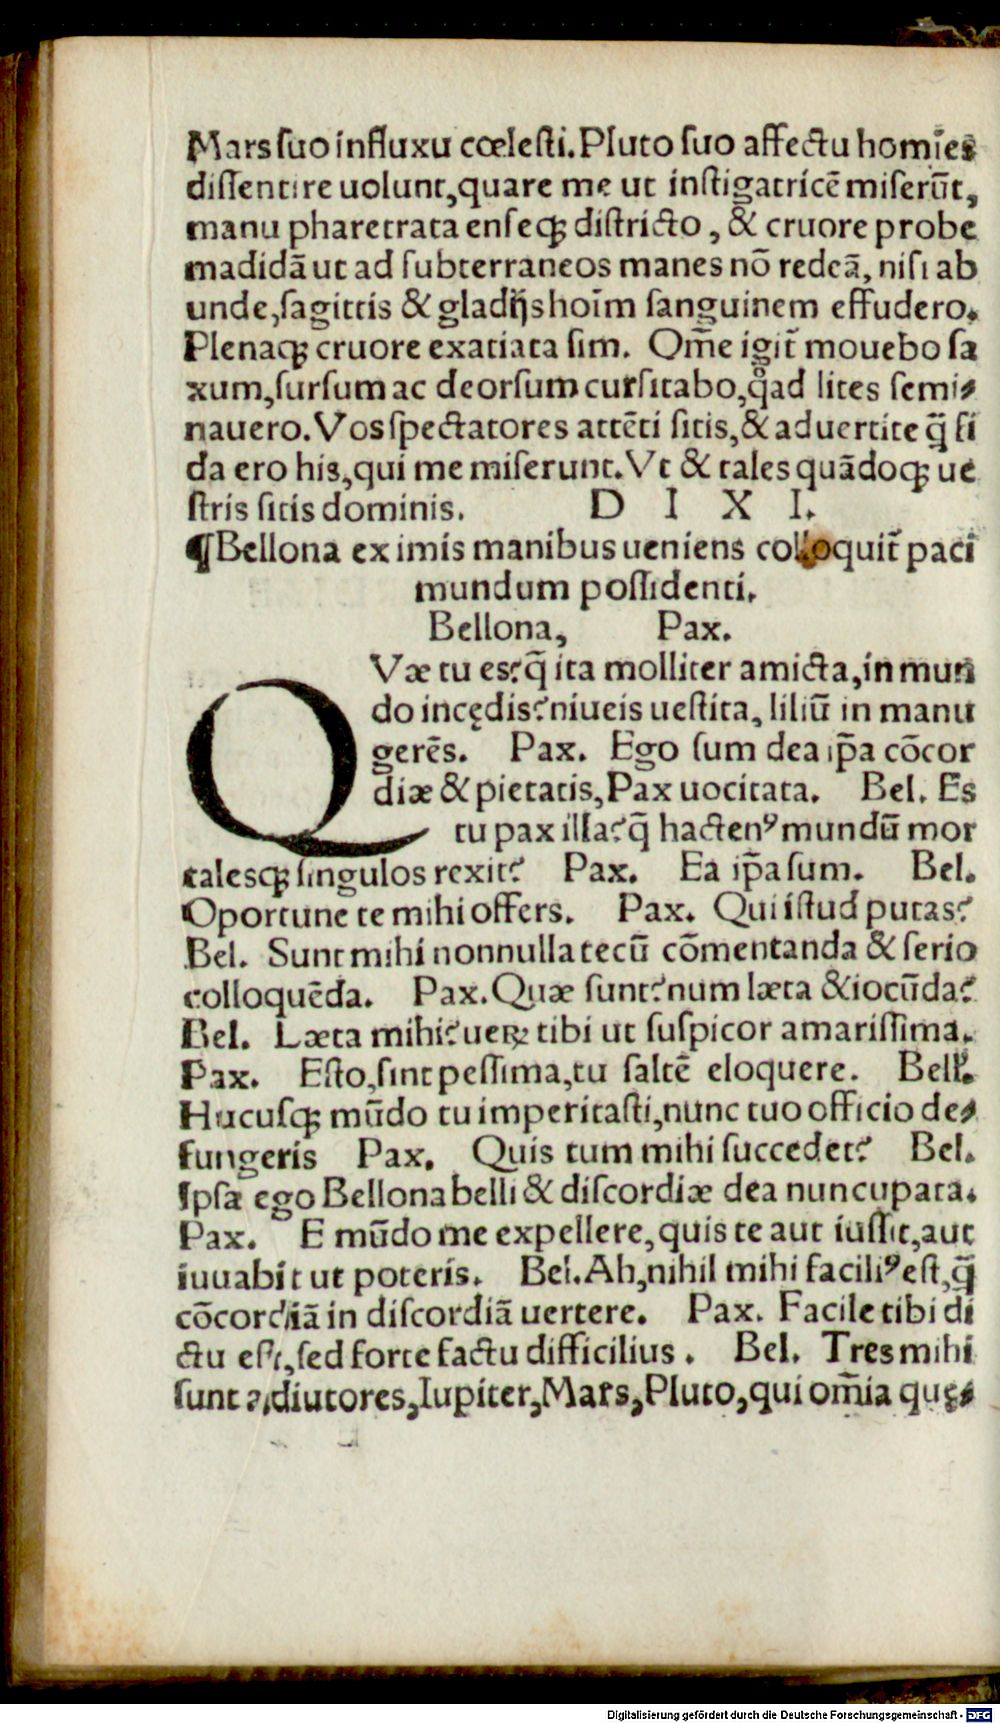 Mars ſuo influxu cœleſti. Pluto ſuo affectu homīes
diſſentire uolunt, quare me ut inſtigatricē miſerūt,
manu pharetrata enſeqꝫ diſtricto, & cruore probe
madidā ut ad ſubterraneos manes nō redeā, niſi ab
unde, ſagittis & gladĳs hoīm ſanguinem effudero.
Plenaqꝫ cruore exatiata ſim. Om̄e igit̄ mouebo ſa
xum, ſurſum ac deorſum curſitabo, qͦad lites ſemi⸗
nauero. Vos ſpectatores attēti ſitis, & aduertite q̄ fi
da ero his, qui me miſerunt. Vt & tales quādoqꝫ ue
ſtris ſitis dominis. D I X I.
¶Bellona ex imis manibus ueniens colloquit̄ paci
mundum poſſidenti.
Bellona, Pax.
QVæ tu es? q̄ ita molliter amicta, in mun
do incędis? niueis ueſtita, liliū in manu
gerēs. Pax. Ego ſum dea ip̄a cōcor
diæ & pietatis, Pax uocitata. Bel. Es
tu pax illa? q̄ hactenꝰ mundū mor
talesqꝫ ſingulos rexit? Pax. Ea ip̄a ſum. Bel.
Oportune te mihi offers. Pax. Qui iſtud putas?
Bel. Sunt mihi nonnulla tecū cōmentanda & ſerio
colloquēda. Pax. Quæ ſunt? num læta & iocūda?
Bel. Læta mihi? ueꝝ tibi ut ſuſpicor amariſſima.
Pax. Eſto, ſint peſſima, tu ſaltē eloquere. Bell.
Hucuſqꝫ mūdo tu imperitaſti, nunc tuo officio de⸗
fungeris Pax. Quis tum mihi ſuccedet? Bel.
Ipſa ego Bellona belli & diſcordiæ dea nuncupata.
Pax. E mūdo me expellere, quis te aut iuſſit, aut
iuuabit ut poteris. Bel. Ah, nihil mihi faciliꝰ eſt, q̄
cōcordiā in diſcordiā uertere. Pax. Facile tibi di
ctu eſt, ſed forte factu difficilius. Bel. Tres mihi
ſunt adiutores, Iupiter, Mars, Pluto, qui om̄ia quę⸗
Digitalisierung gefördert durch die Deutsche Forschungsgemeinschaft - DFG